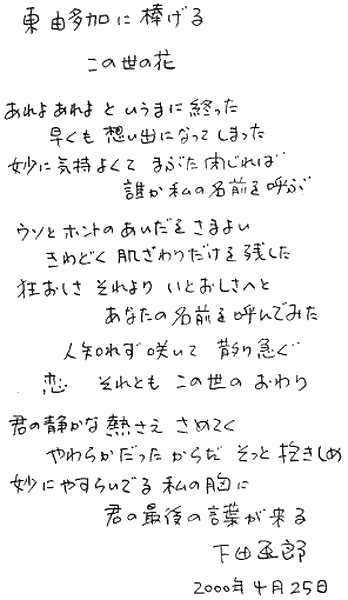 東由多加に捧げる
この世の花
あれよあれよというまに終った
早くも想い出になってしまった
妙に気持よくてまぶた閉じれば
誰か私の名前を呼ぶ
ウソとホントのあいだをさまよい
きわどく肌ざわりだけを残した
狂おしさ それより いとおしさへと
あなたの名前を呼んでみた
人知れず咲いて 散り急ぐ
恋 それとも この世の おわり
君の静かな熱さえ さめてく
やわらかだった からだ そっと抱きしめ
妙にやすらいでる 私の胸に
君の最後の言葉が来る
下田逸郎
2000年4月25日